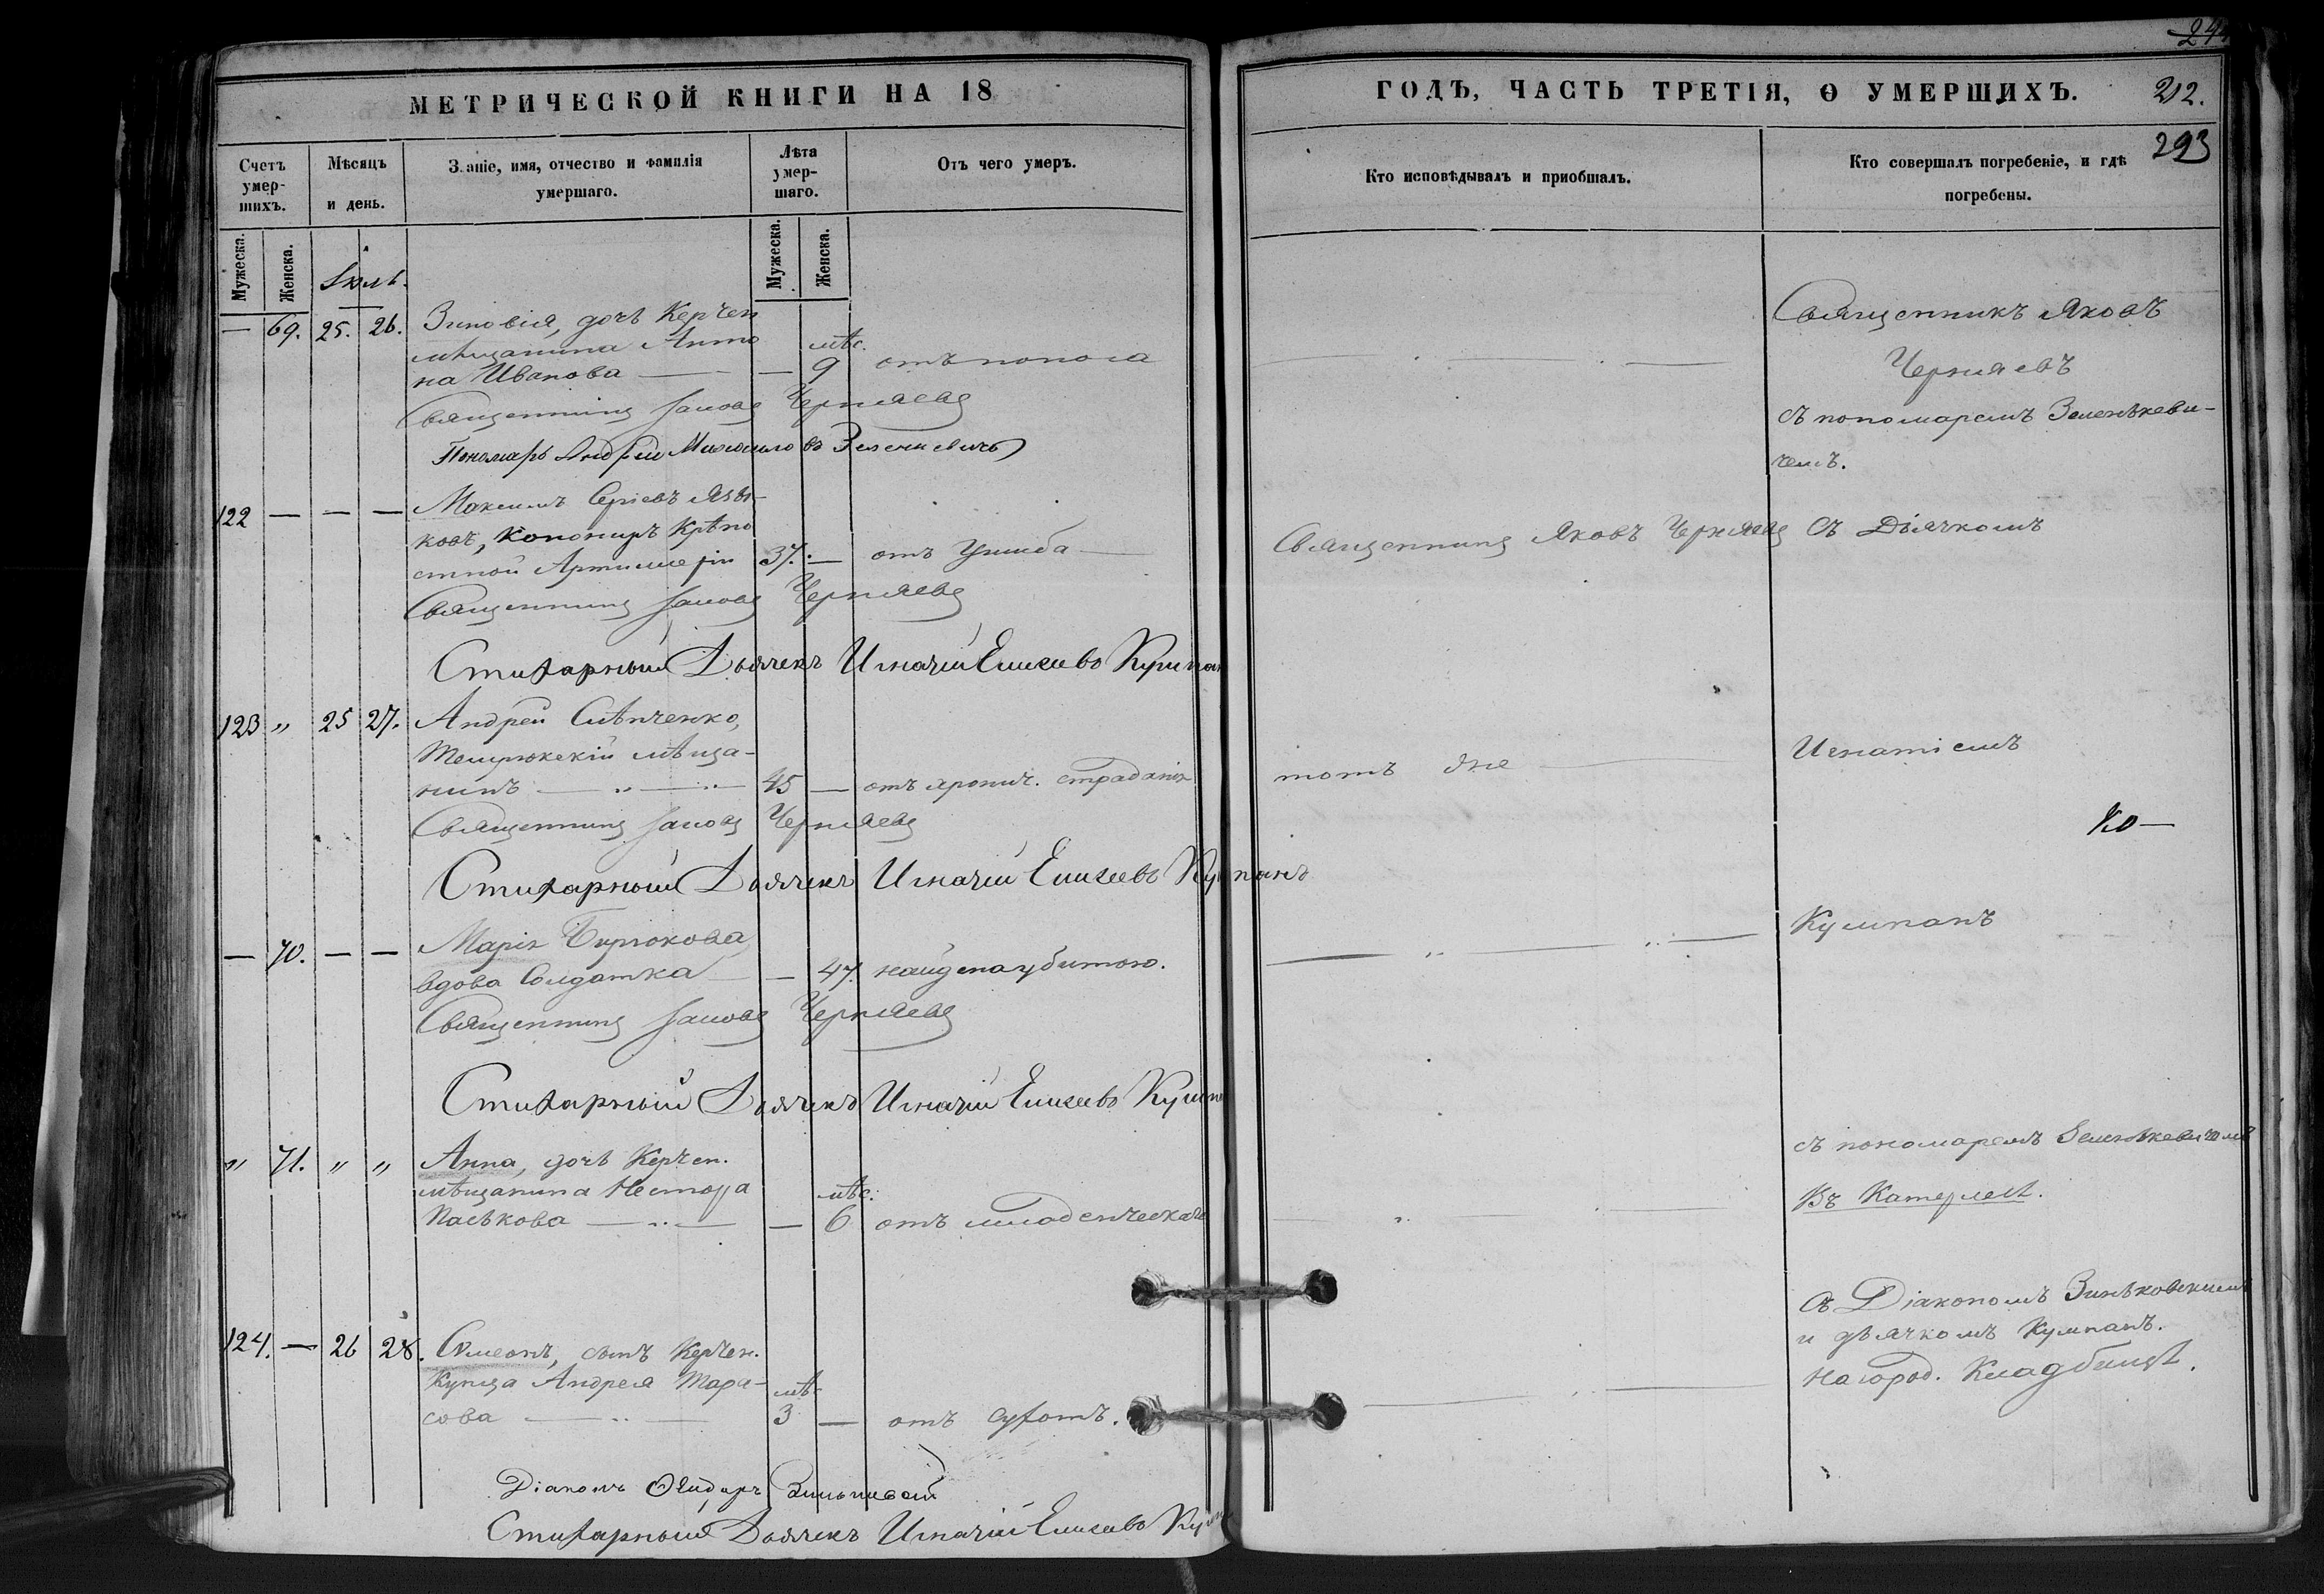 МЕТРИЧЕСКОЙ КНИГИ НА 18
Счетъ умерших. Мѣсяцъ и день. Званіе, имя, отчество и фамилія умершаго. Лѣта умершаго. Отъ чего умеръ.
Мужеска. Женска. Мужеска. Женска.
Іюль.
— 69. 25. 26. Зиновія, дочь Керчен
мѣщанина Анто мѣс.
на Иванова — — 9 отъ поноса
Священникъ Іаковъ Черняевъ
Пономарь Андрей Зеленкевичъ
122 — — — Максимъ Сергіевъ Язы-
ковъ, Канониръ Крѣпо
стной Артиллеріи 37. — отъ Ушиба —
Священникъ Іаковъ Черняевъ
Стихарный Дьячекъ Игнатій Елисеевъ Кумпан
123 " 25 27. Андрей Слѣпченко,
Темрюкскій мѣща-
нинъ — " — " — 45 — отъ хронич. страданія
Священникъ Іаковъ Черняевъ
Стихарный Дьячекъ Игнатій Елисеевъ Кумпанъ
— 70. — — Марія Бирюкова,
вдова Солдатка — — 47. найдена убитою.
Священникъ Іаковъ Черняевъ
Стихарный Дьячекъ Игнатій Елисеевъ Кумп
" 71. " " Анна, дочь Керчен.
мѣщанина Нестора мѣс.
Паськова — " — — 6 отъ младенческаго
124. — 26 28. Симеонъ, сынъ Керчен.
Купца Андрея Тара- мѣс
сова — " — 3 — отъ сухотъ.
Діаконъ Ѳеодоръ Зиньковскій
Стихарный Дьячекъ Игнатій Елисеевъ Кумп
244
ГОДЪ, ЧАСТЬ ТРЕТІЯ, О УМЕРШИХЪ. 212.
293
Кто исповѣдывалъ и приобщалъ. Кто совершалъ погребеніе, и гдѣ погребены.
Священникъ Яковъ
Черняевъ
съ пономаремъ Зеленькеви-
чемъ.
Священникъ Яковъ Черняевъ Съ Дьячкомъ
тотъ же — Игнатіемъ
Ку—
Кумпанъ
съ пономаремъ Зеленькевичемъ
Въ Катерлесѣ.
Съ Діакономъ Зиньковскимъ
и дьячкомъ Кумпанъ.
На город. Кладбищѣ.